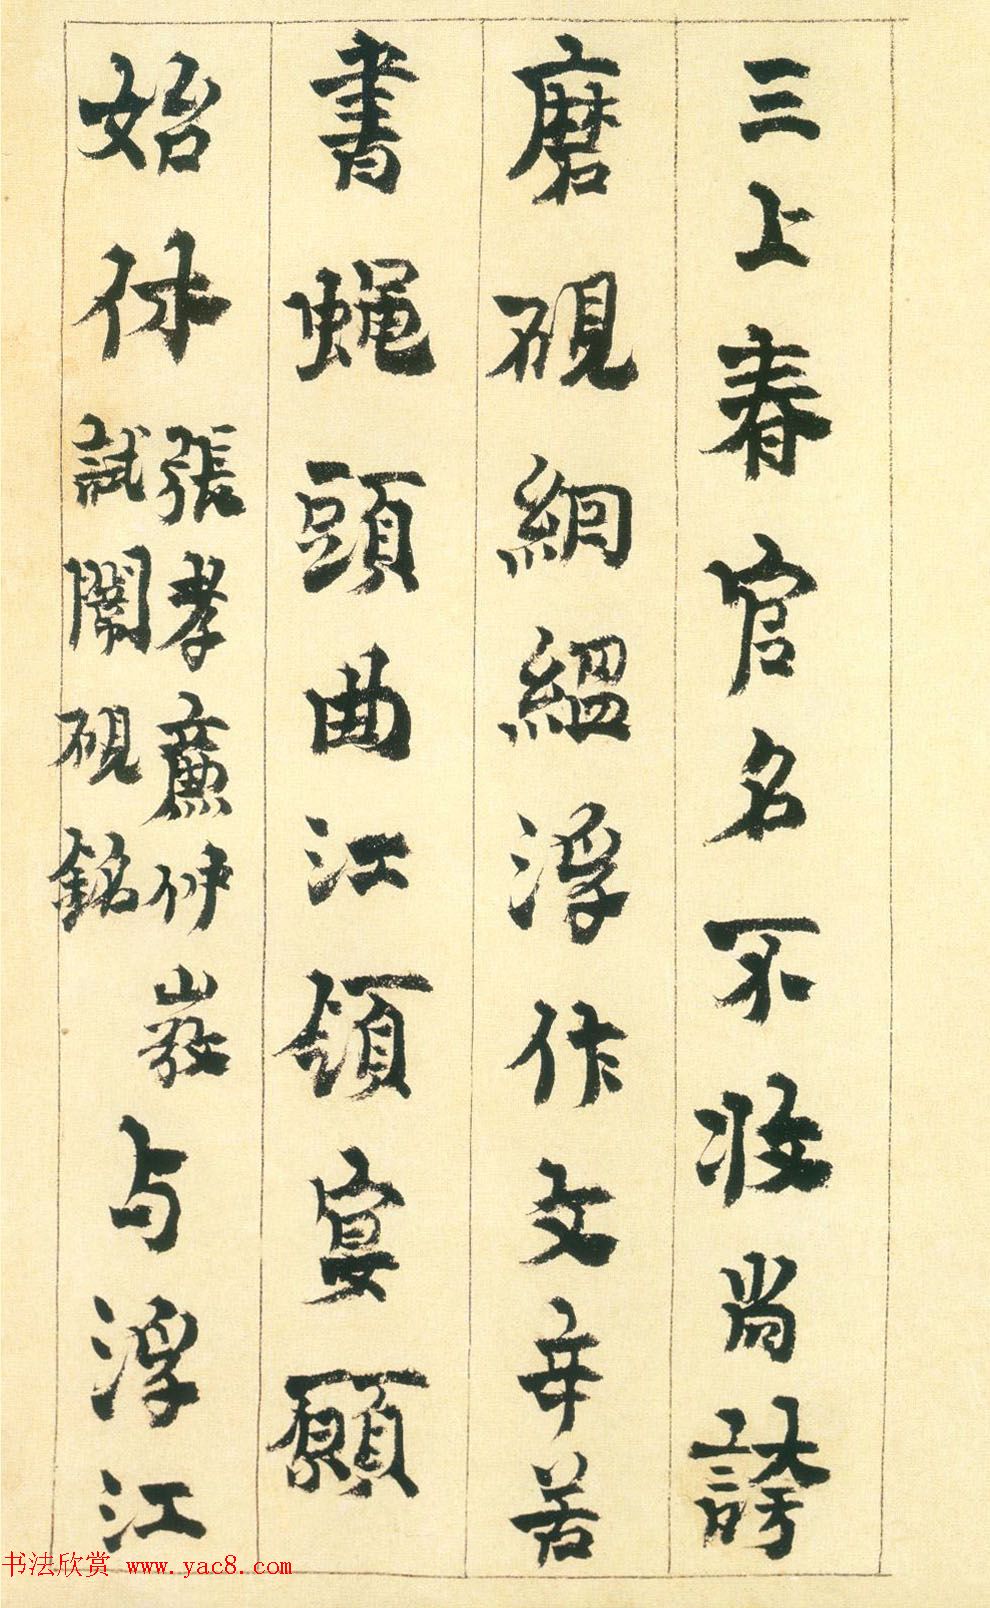 三上春官名不收尚誇
磨硯絪縕浮作文辛苦
書蝇頭曲江領宴願
始休
張孝廉伊
試闈硯銘
与浮江
书法欣赏 www.yac8.com